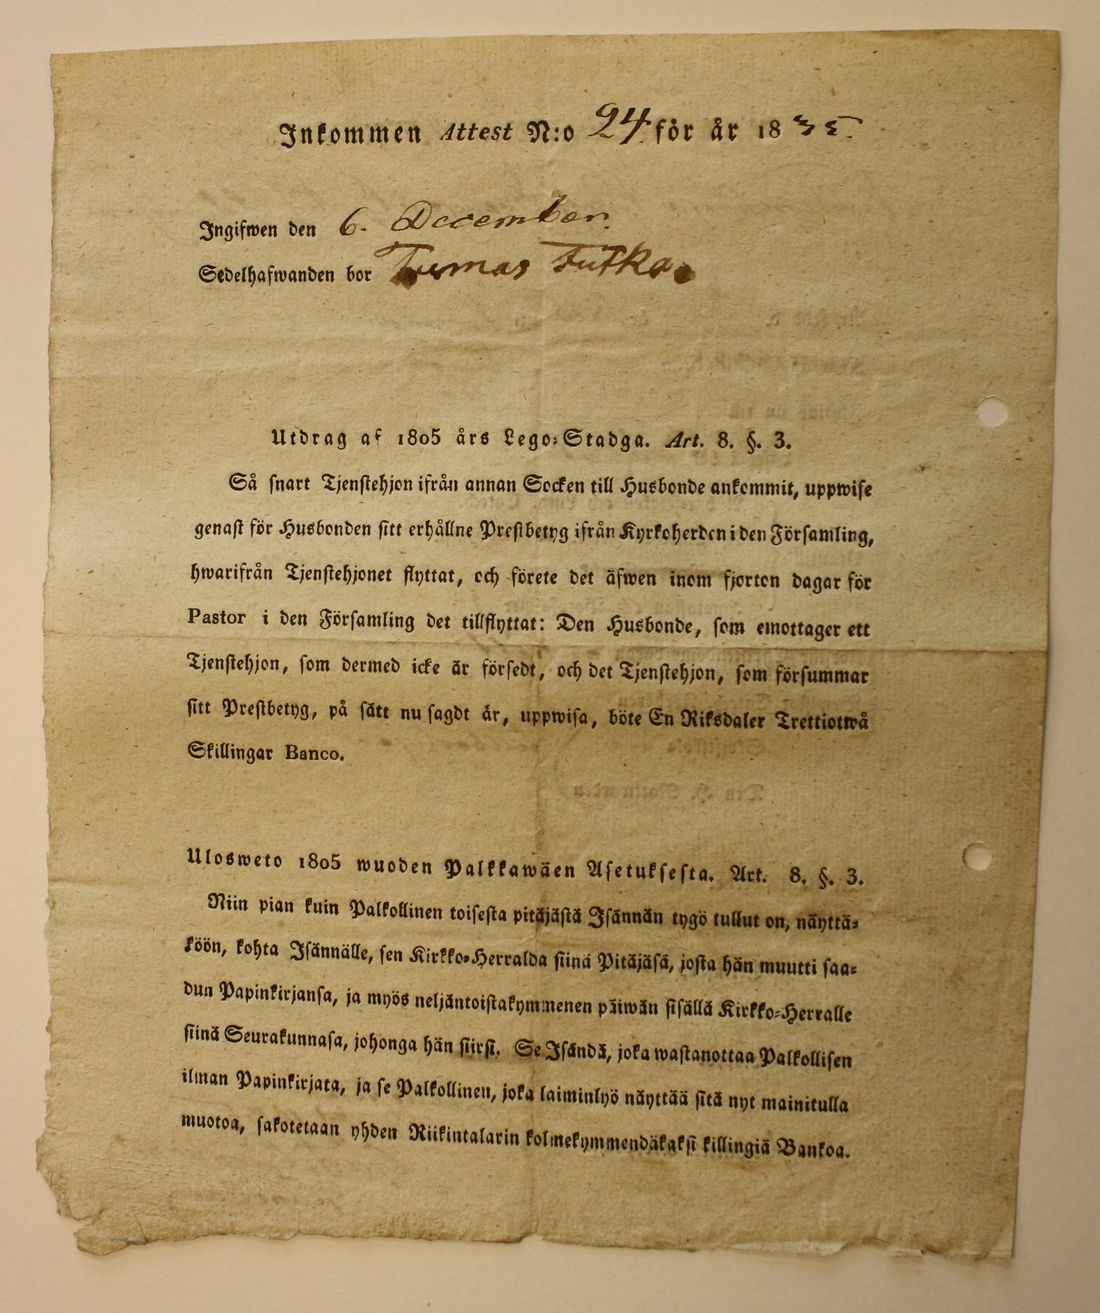 Inkommen Attest N:o 24 för år 1835.
Ingifwen den 6. December.
Sedelhafwanden bor Tumas Tutka
Utdrag af 1805 års Lego-Stadga. Art. 8. §. 3.
Så snart Tjenstehjon ifrån annan Socken till Husbonde ankommit, uppwise
genast för Husbonden sitt erhållne Prestbetyg ifrån Kyrkoherden i den Församling,
hwarifrån Tjenstehjonet flyttat, och förete det äfwen inom fjorton dagar för
Pastor i den Församling det tillflyttat: Den Husbonde, som emottager ett
Tjenstehjon, som dermed icke är försedt, och det Tjenstehjon, som försummar
sitt Prestbetyg, på sätt nu sagdt är, uppwisa, böte En Riksdaler Trettiotwå
Skillingar Banco.
Ulosweto 1805 wuoden Palkkawäen Asetuksesta. Art. 8. §. 3.
Niin pian kuin Palkollinen toisesta pitäjästä Isännän tygö tullut on, näyttä-
köön, kohta Isännälle, sen Kirkko-Herralda siinä Pitäjäsä, josta hän muutti saa-
dun Papinkirjansa, ja myös neljäntoistakymmenen päiwän sisällä Kirkko-Herralle
siinä Seurakunnasa, johonga hän siirsi. Se Isändä, joka wastanottaa Palkollisen
ilman Papinkirjata, ja se Palkollinen, joka laiminlyö näyttää sitä nyt mainitulla
muotoa, sakotetaan yhden Riikintalarin kolmekymmendäkaksi killingiä Bankoa.